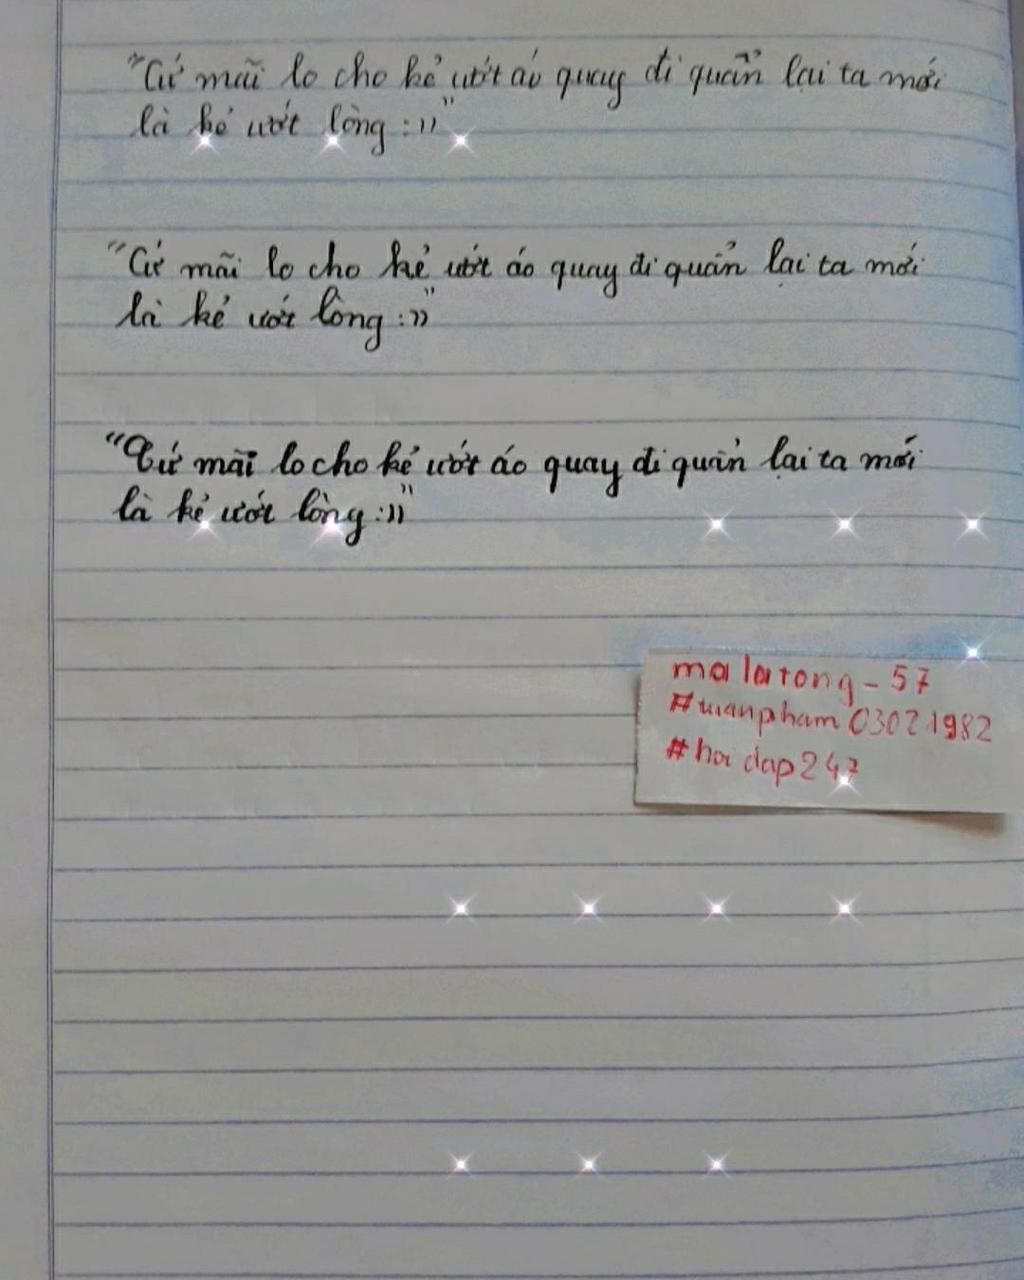 "Cứ mãi lo cho kẻ ướt áo quay đi quẩn lại ta mới
là kẻ ướt lòng :))"
"Cứ mãi lo cho kẻ ướt áo quay đi quẩn lại ta mới
là kẻ ướt lòng :))"
"Cứ mãi lo cho kẻ ướt áo quay đi quẩn lại ta mới
là kẻ ướt lòng :))"
malatong - 57
#tuanpham03021982
#hoidap247